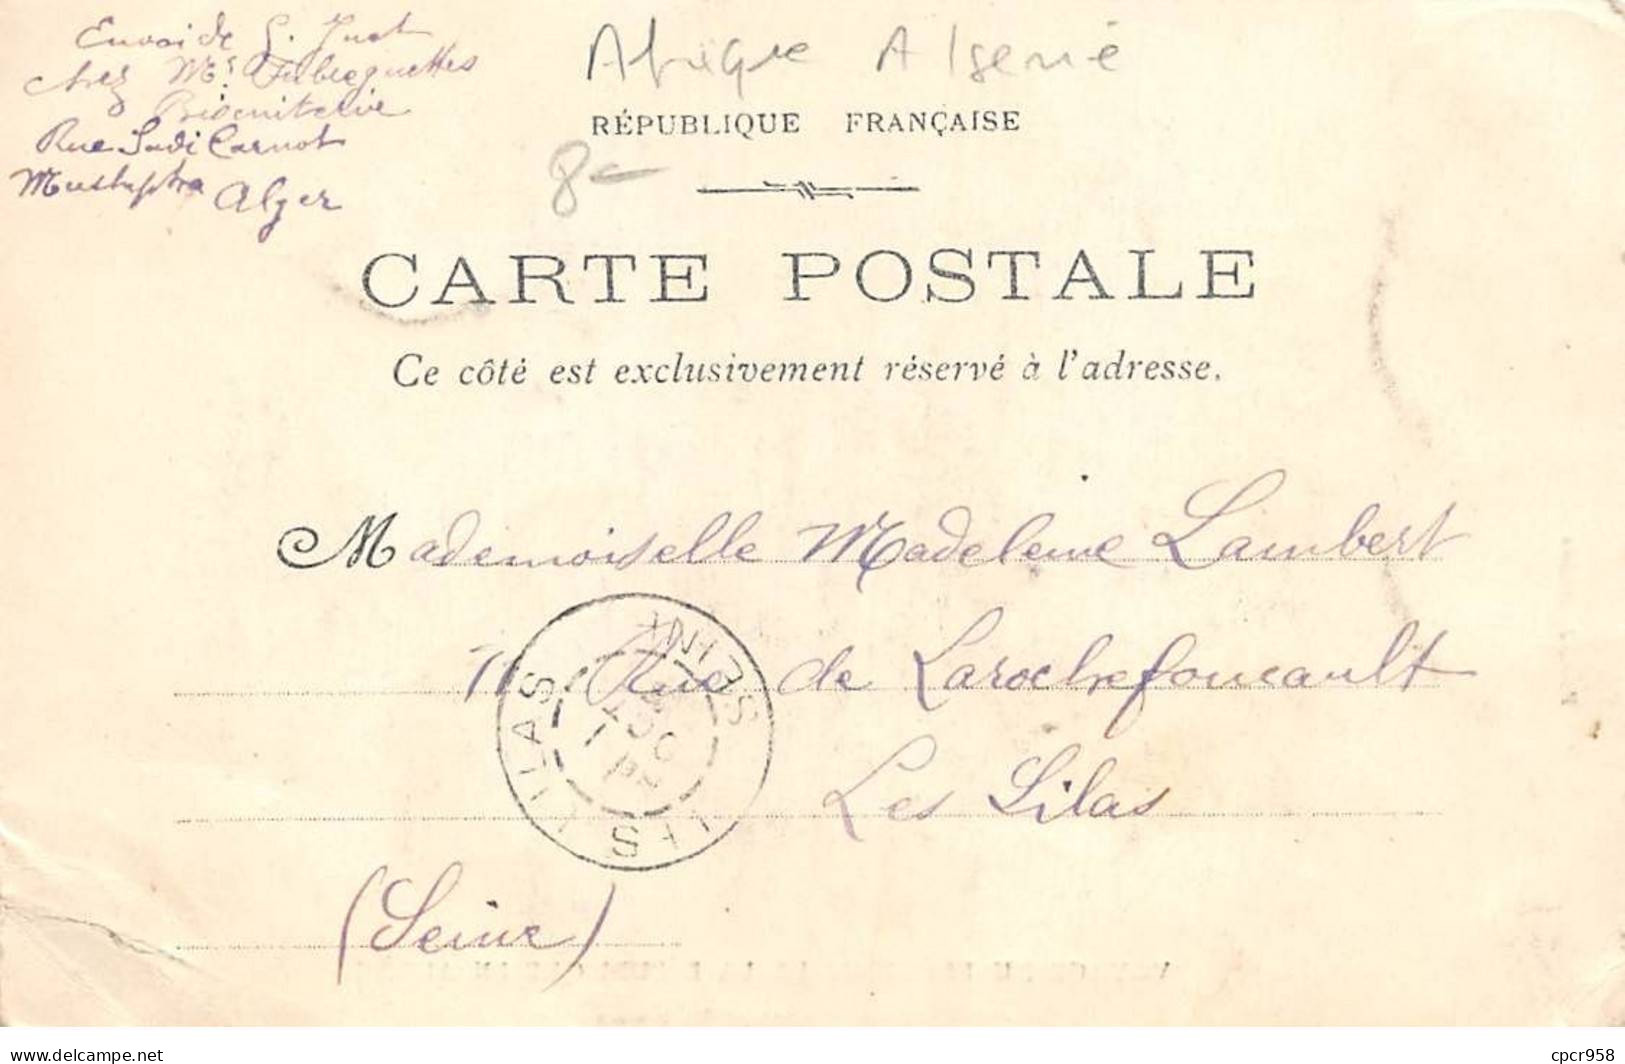 Envoi de G. Juet
chez Mr Fabreguettes
Biscuiterie
Rue Sadi Carnot
Mustapha Alger
Afrique Algerie
RÉPUBLIQUE FRANÇAISE
8-
CARTE POSTALE
Ce côté est exclusivement réservé à l'adresse.
Mademoiselle Madeleine Lambert
11 Rue de Larochefoucault
Les Lilas
(Seine)
LES LILAS SEINE
www.delcampe.net
cpcr958